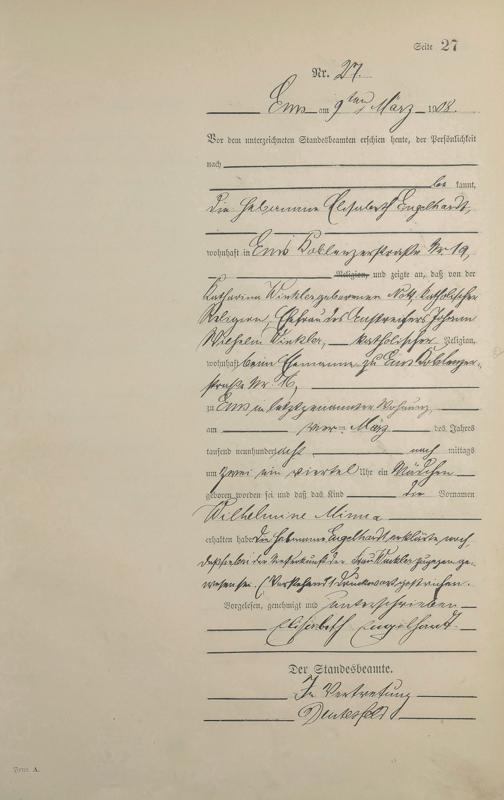 Seite 27
Nr. 27.
Ems am 9ten März 1908.
Vor dem unterzeichneten Standesbeamten erschien heute, der Persönlichkeit
nach
be kannt,
die Hebamme Elisabeth Engelhardt,
wohnhaft in Ems Koblenzerstraße Nr. 19,
Religion, und zeigte an, daß von der
Katharina Winkler geborenen Nott, katholischer
Religion, Ehefrau des Anstreichers Johann
Wilhelm Winkler, katholischer Religion,
wohnhaft beim Ehemanne zu Ems Koblenzer-
straße Nr.
zu Ems in letztgenannter Wohnung,
am März des Jahres
tausend neunhundert acht nach mittags
um zwei ein viertel Uhr ein Mädchen
geboren worden sei und daß das Kind die Vornamen
Wilhelmine Minna
erhalten habe. Die Hebamme Engelhardt erklärte noch,
daß sie bei der Niederkunft der Frau Winkler zugegen ge-
wesen sei. (Vorstehend 1 Druckwort gestrichen.
Vorgelesen, genehmigt und unterschrieben
Elisabeth Engelhardt.
Der Standesbeamte.
In Vertretung
Form. A.